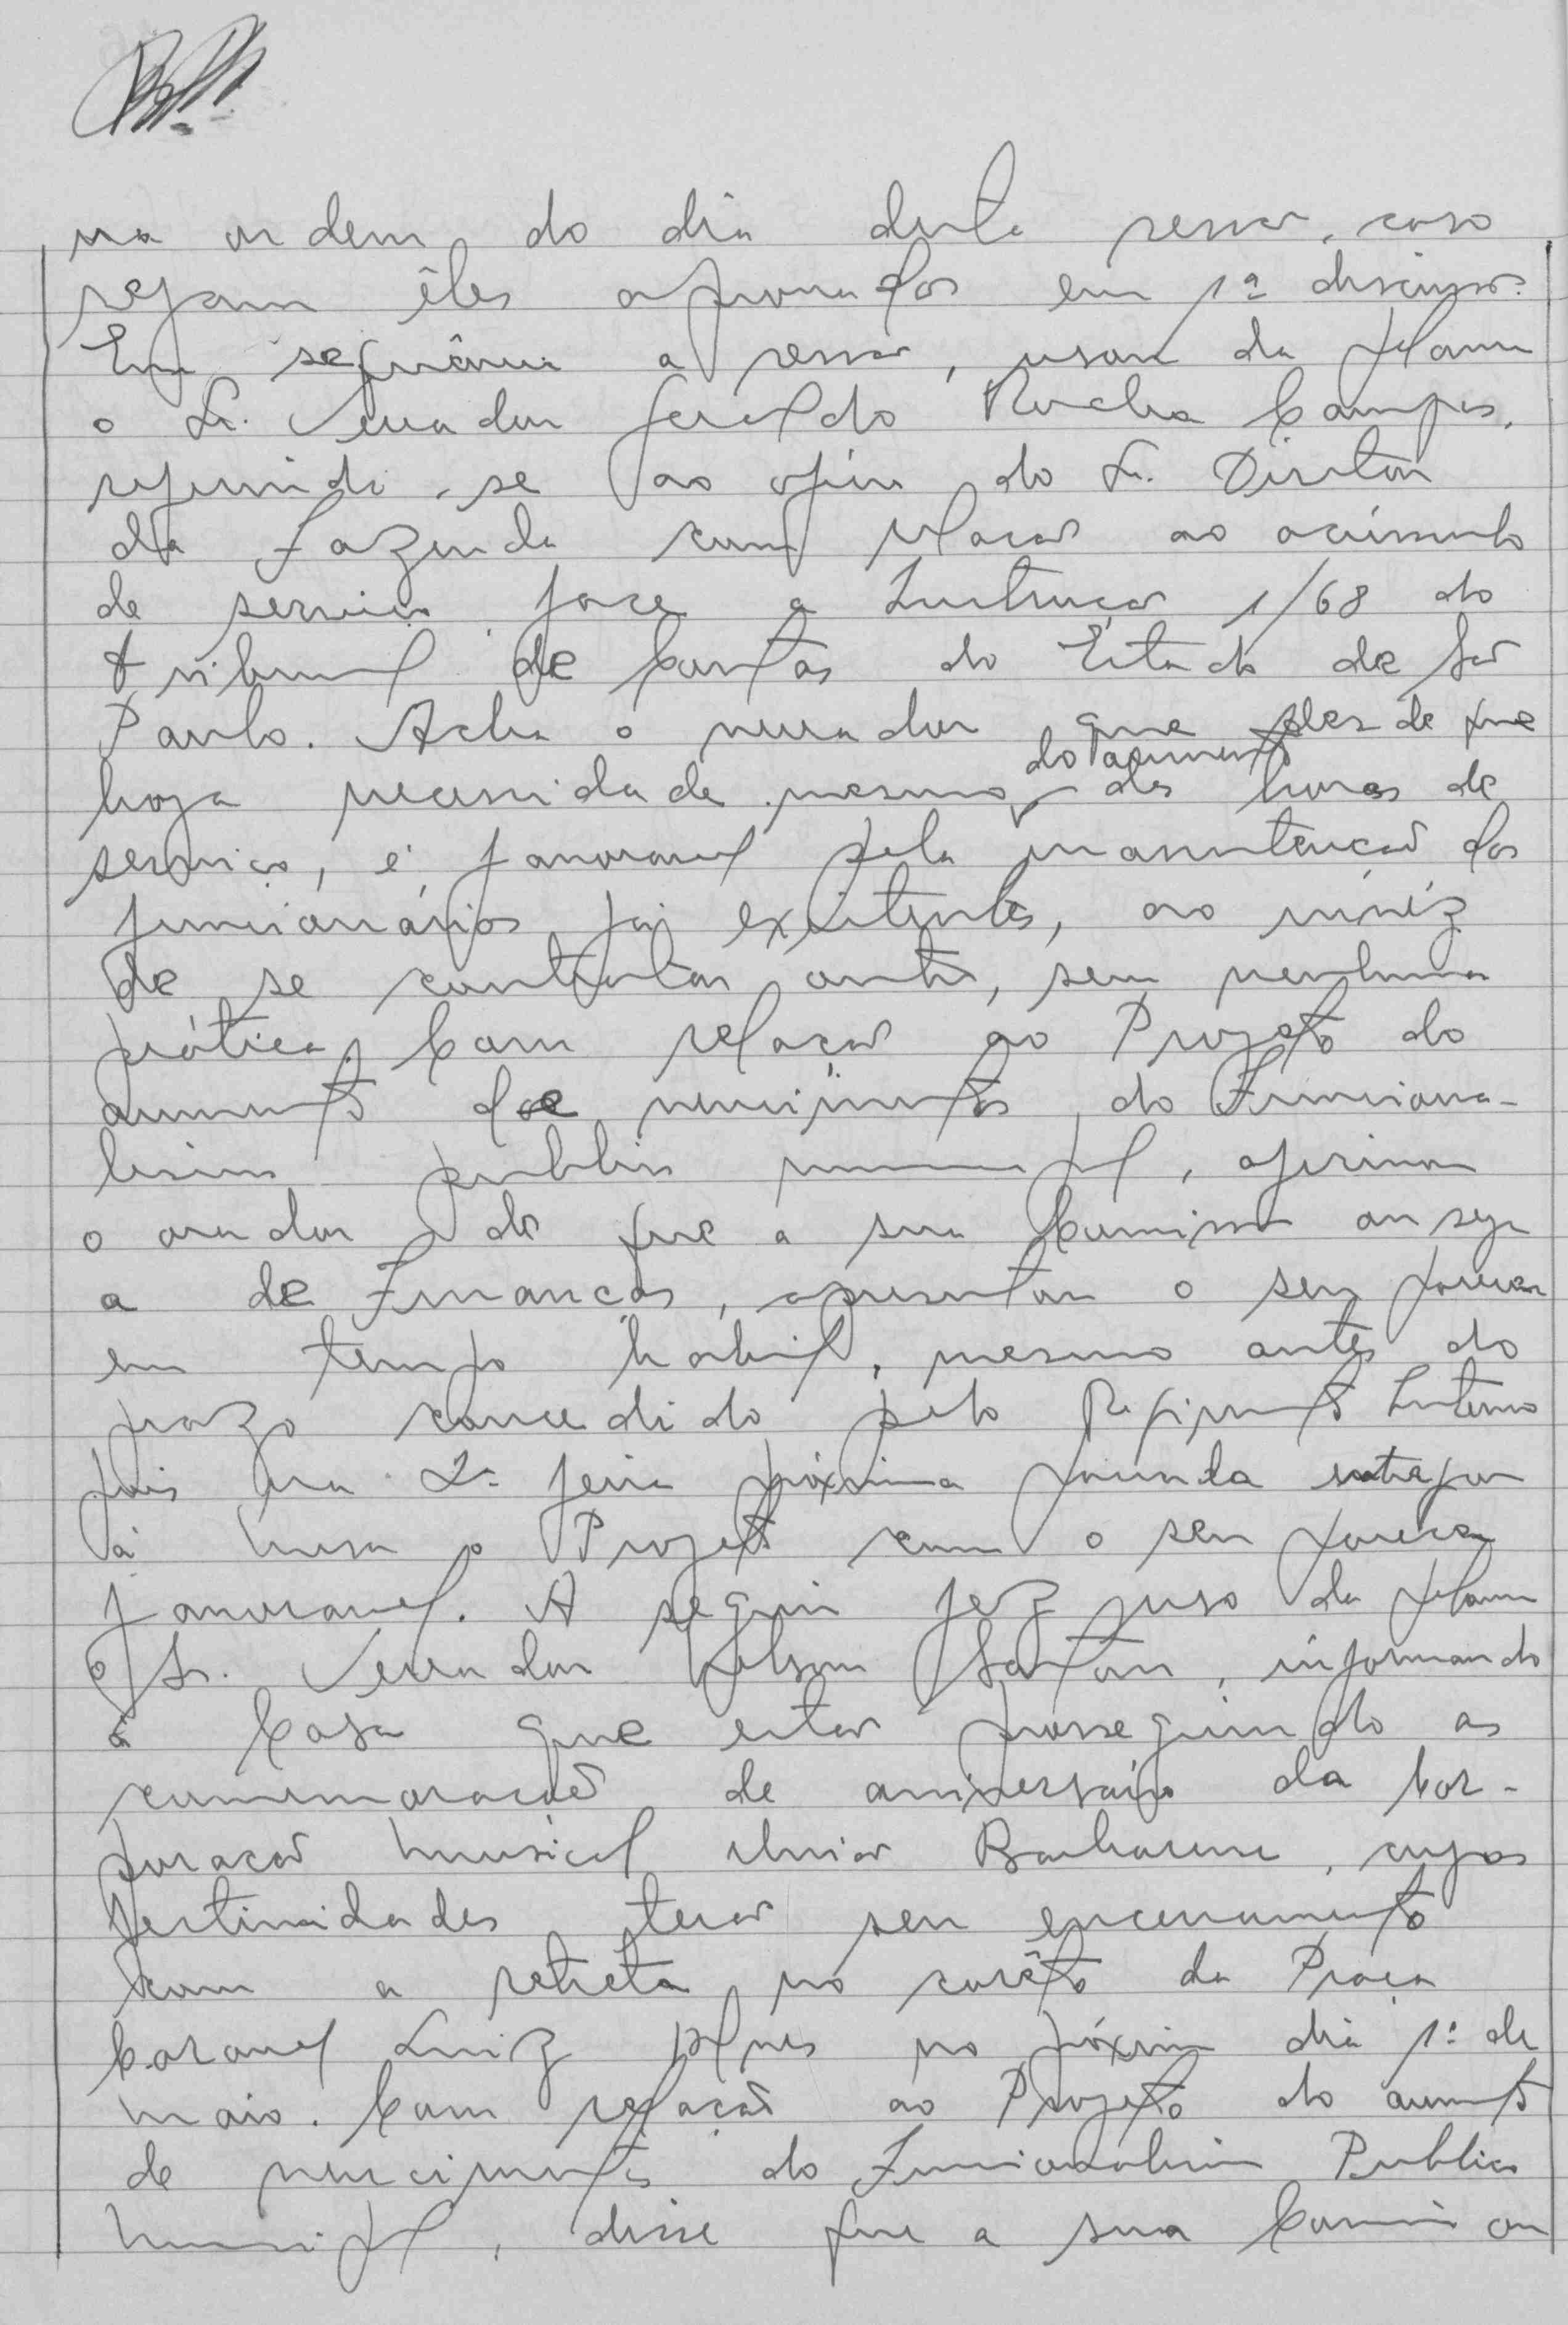 na ordem do dia desta sessão, caso
sejam êles aprovados em 1ª discussão.
Em sequência a sessão, usou da palavra
o Sr. Vereador Geraldo Rocha Campos,
referindo-se ao ofício do Sr. Diretor
da Fazenda com relação ao acúmulo
de serviço face a Instrução 1/68 do
tribunal de Contas do Estado de São
Paulo. Acha o vereador que desde que
haja necessidade mesmo do aumento das horas de
serviço, é favoravel pela manutenção dos
funcionários já existentes, ao invéz
de se contratar outro, sem nenhuma
prática. Com relação ao Projeto do
aumento de vencimentos do Funciona-
lismo publico municipal, afirmou
o orador de que a sua Comissão ou seja
a de Finanças, apresentou o seu parecer
em tempo habil, mesmo antes do
prazo concedido pelo Regimento Interno
pois na 2ª feira próxima passada entregou
à mesa o Projeto com o seu parecer
favoravel. A seguir fez uso da palavra
o Sr. Vereador Nelson Gatão, informando
à Casa que estão prosseguindo as
comemorações de aniversário da Cor-
poração Musical União Barbarense, cujas
festividades terão seu encerramento
com a retreta no corêto da Praça
Coronel Luiz Alves no próximo dia 1º de
maio. Com relação ao Projeto do aumento
de vencimentos do Funcionalismo Publico
Municipal, disse que a sua Comissão ou